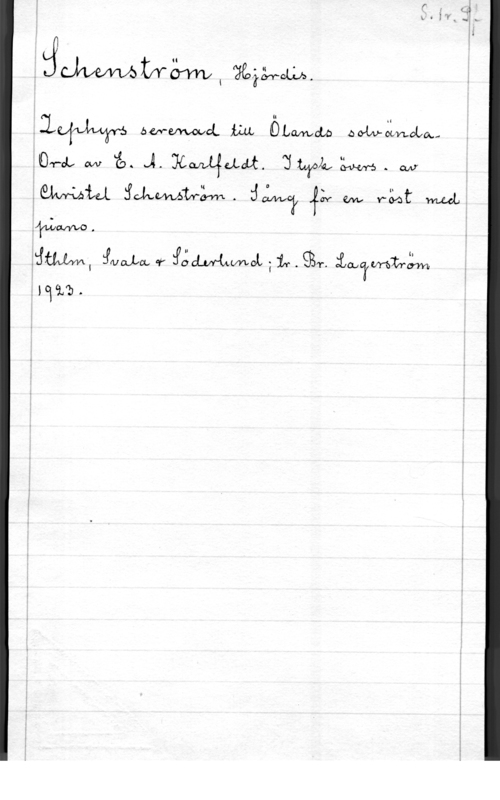 S. tr. 9:
Schenström, Hjördis.
Zephyrs serenad till Ölands solvända.
Ord av E. A. Karlfeldt. I tysk övers. av
Christel Schenström. Sång för en röst med
piano.
Sthlm, Svala & Söderlund; tr. Br. Lagerström
1923.